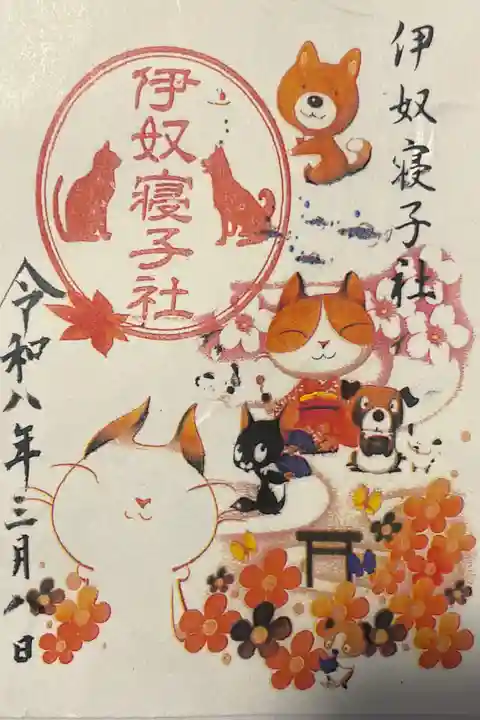 伊奴寝子社
伊奴寝子社
令和八年三月八日